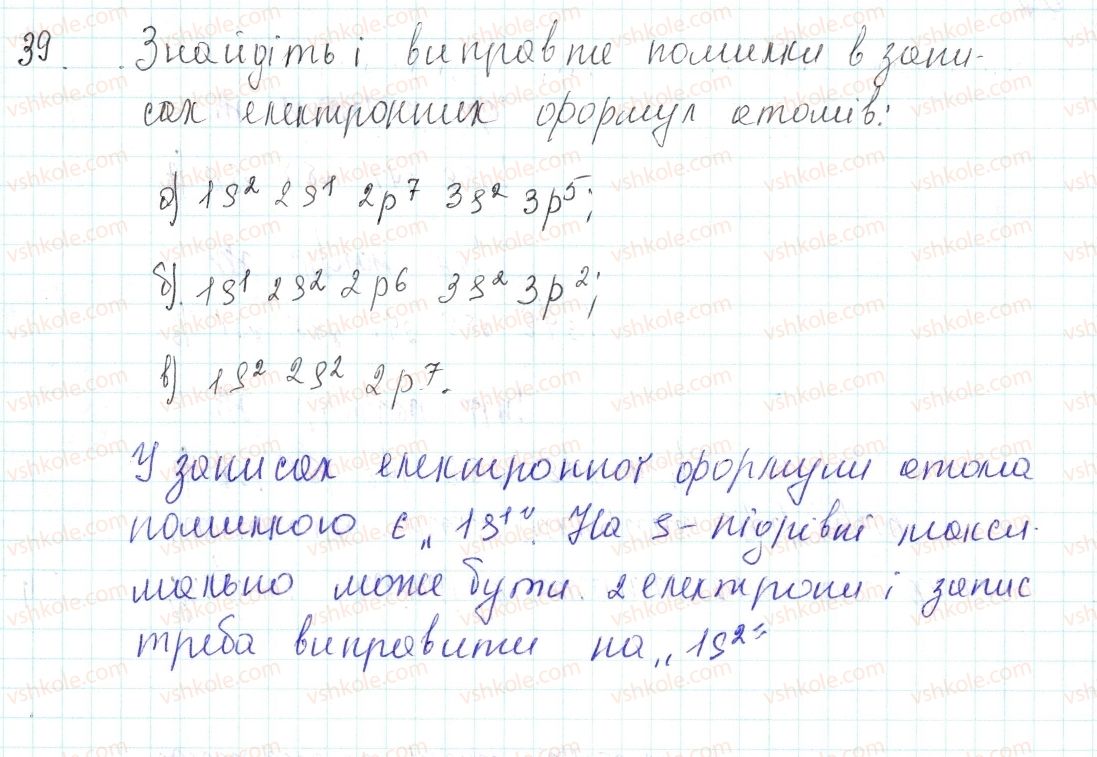 39. Знайдіть і виправте помилки в запи-
сах електронних формул атомів:
а) 1s² 2s¹ 2p⁷ 3s² 3p⁵;
б) 1s¹ 2s² 2p⁶ 3s² 3p²;
в) 1s² 2s² 2p⁷.
У записах електронної формули атома
помилкою є „1s¹". На s-підрівні макси-
мально може бути 2 електрони і запис
треба виправити на „1s²"